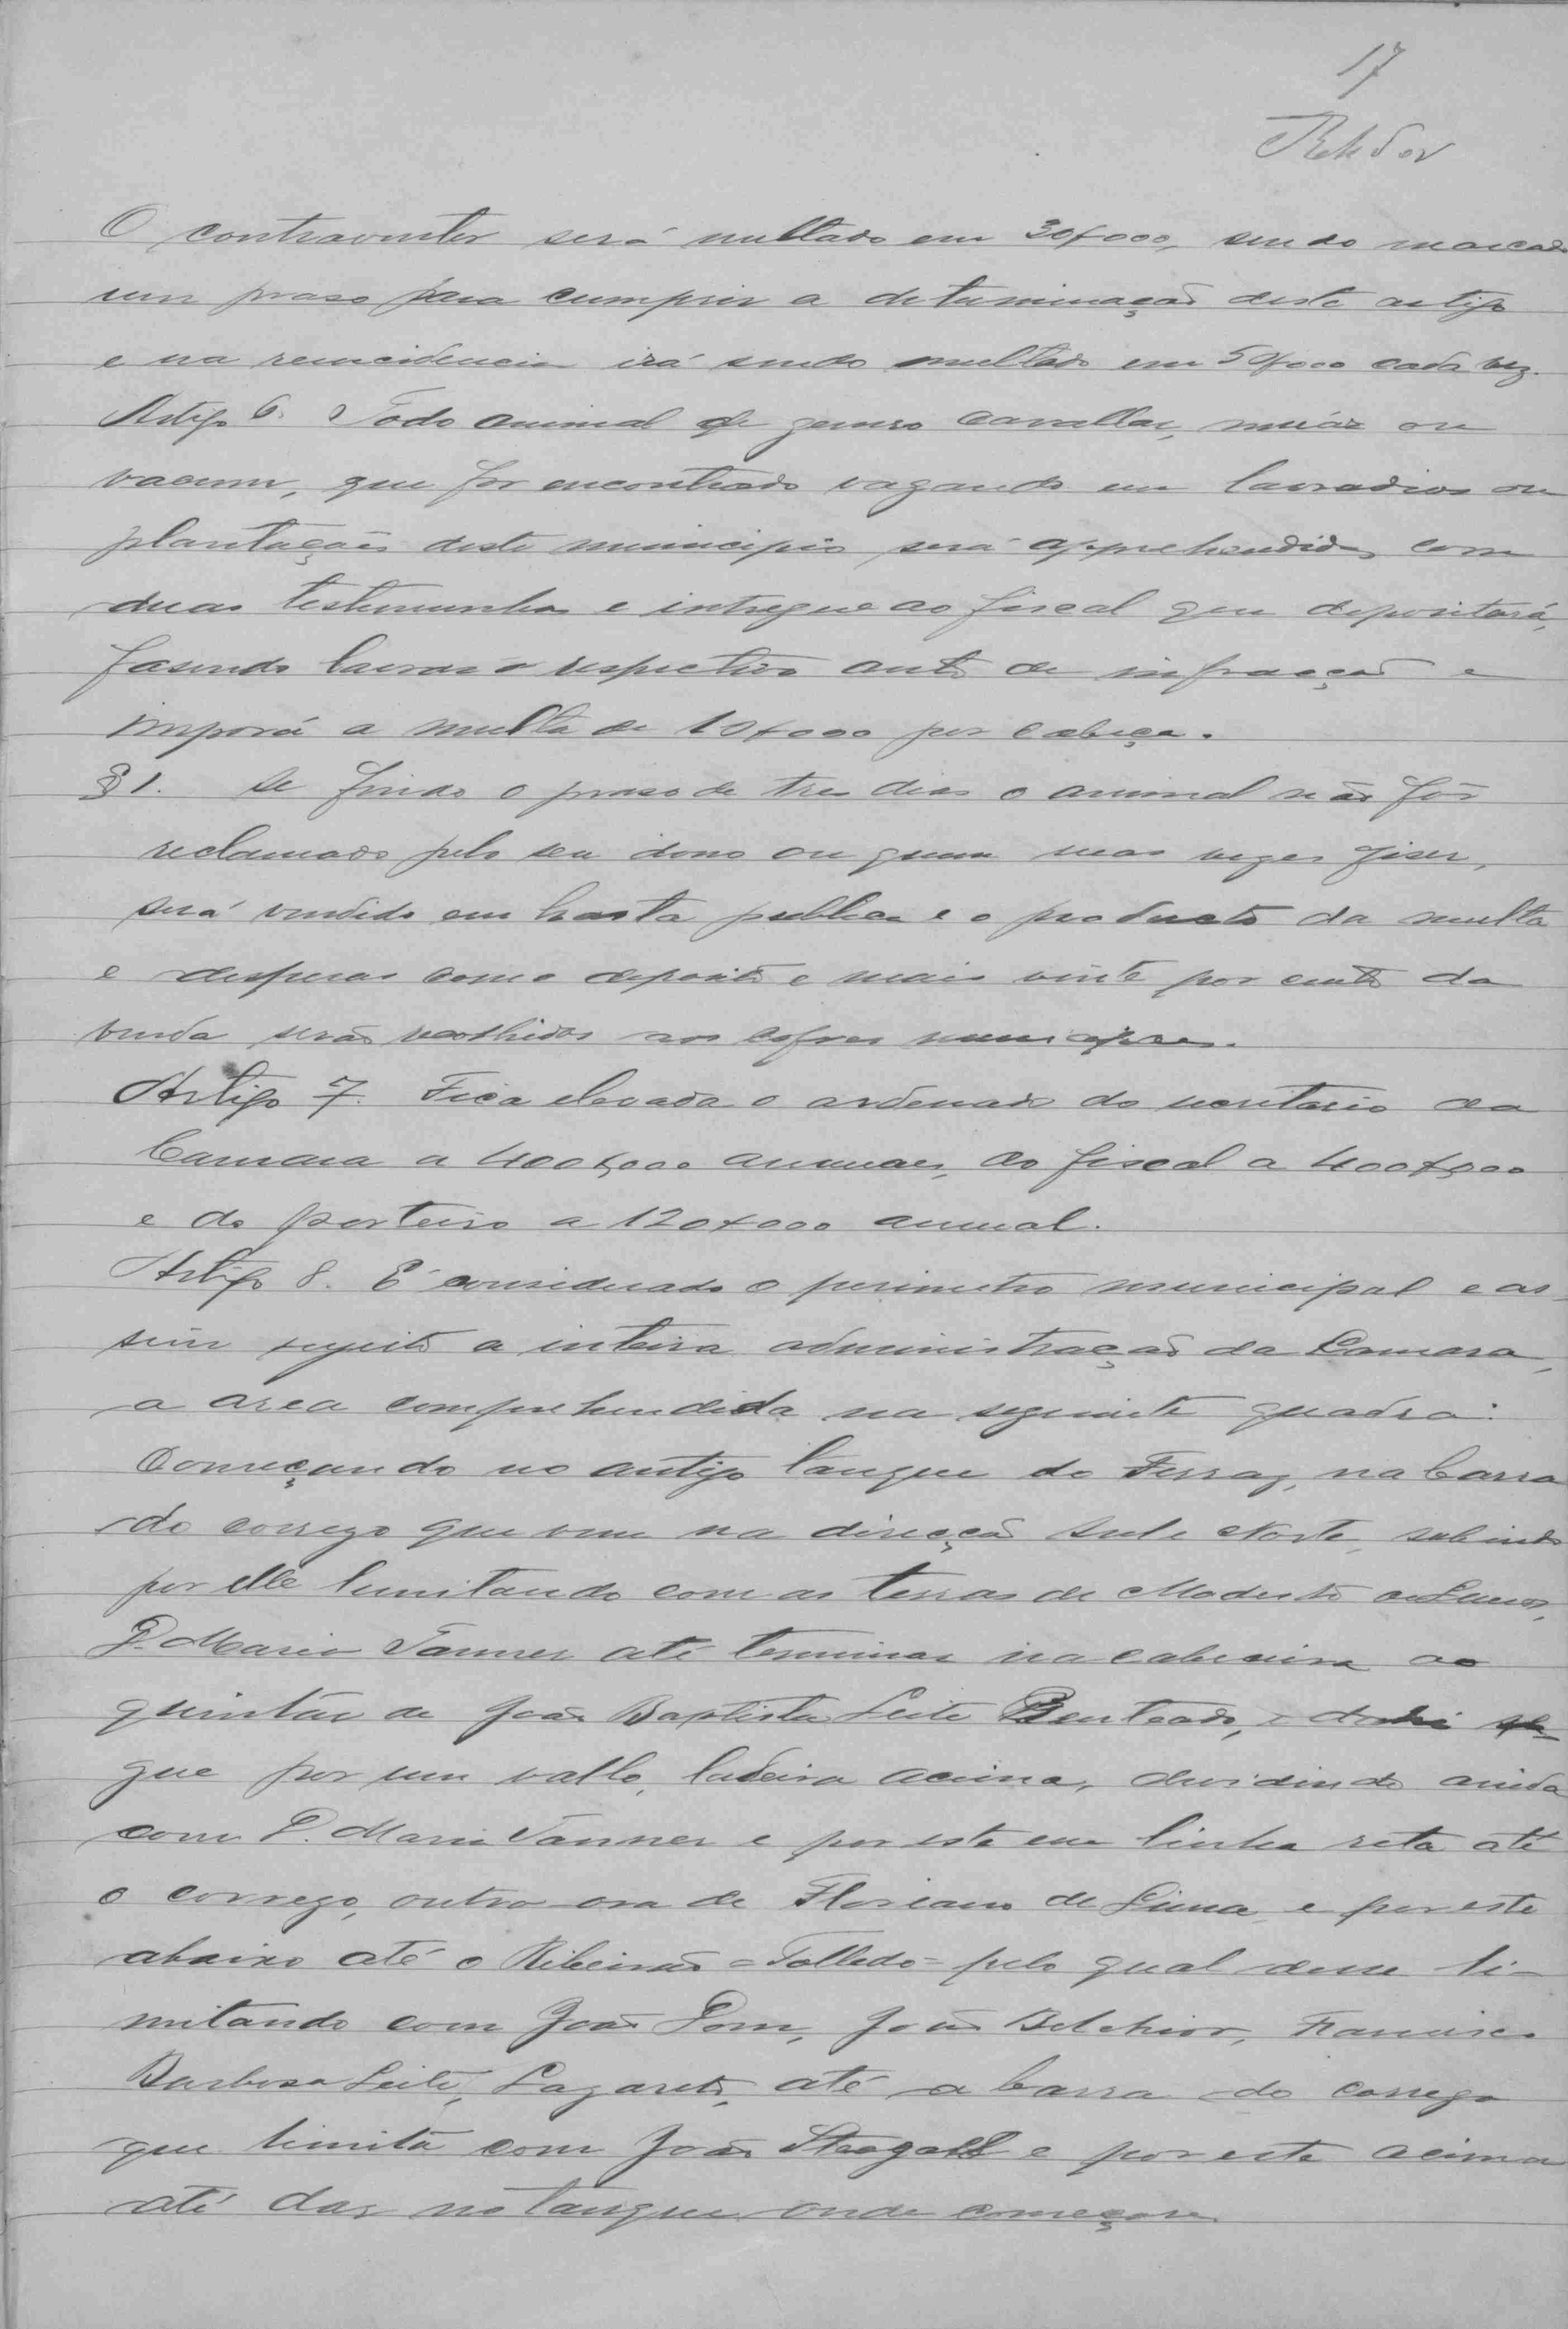 17
O contraventor será multado em 30$000, sendo marcado
um praso para cumprir a determinação deste artigo
e na reincidencia irá sendo multado em 50$000 cada vez.
Artigo 6. Todo animal de genero cavallar, muár ou
vacum, que for encontrado vagando em lavradios ou
plantações deste municipio será apprehendido, com
duas testemunhas e intregue ao fiscal que depositará,
fasendo lavrar o respectivo auto de infracção e
imporá a multa de 10$000 por cabeça.
§ 1. Se findo o praso de tres dias o animal não fôr
reclamado pelo seu dono ou quem suas vezes fiser,
será vendido em hasta publica e o producto da multa
e despesas com o deposito e mais vinte por cento da
venda serão recolhidos aos cofres municipaes.
Artigo 7. Fica elevada o ordenado do secretario da
Camara a 400$000 annuaes, do fiscal a 400$000
e do porteiro a 120$000 annual.
Artigo 8. É considerado o perimetro municipal e as-
sim sujeito a inteira administração da Camara,
a area comprehendida na seguinte quadra:
Começando no antigo tanque do Ferraz, na barra
do corrego que vem na direcção Sul e Norte, subindo
por elle limitando com as terras de Modesto de Lemos,
D. Maria Tanner até terminar na cabeceira do
quintal de João Baptista Leite Penteado, e dahi se-
gue por um vallo, ladeira acima, dividindo ainda
com D. Maria Tanner e por este em linha reta até
o corrego, outro ora de Floriano de Lima, e por este
abaixo até o Ribeirão = Tolledo = pelo qual desce li-
mitando com João Dom, João Belchior, Francisco
Barbosa Leite, Lazareto, até a barra do corrego
que limita com João Steagall e por este acima
até dar no tanque onde começou.